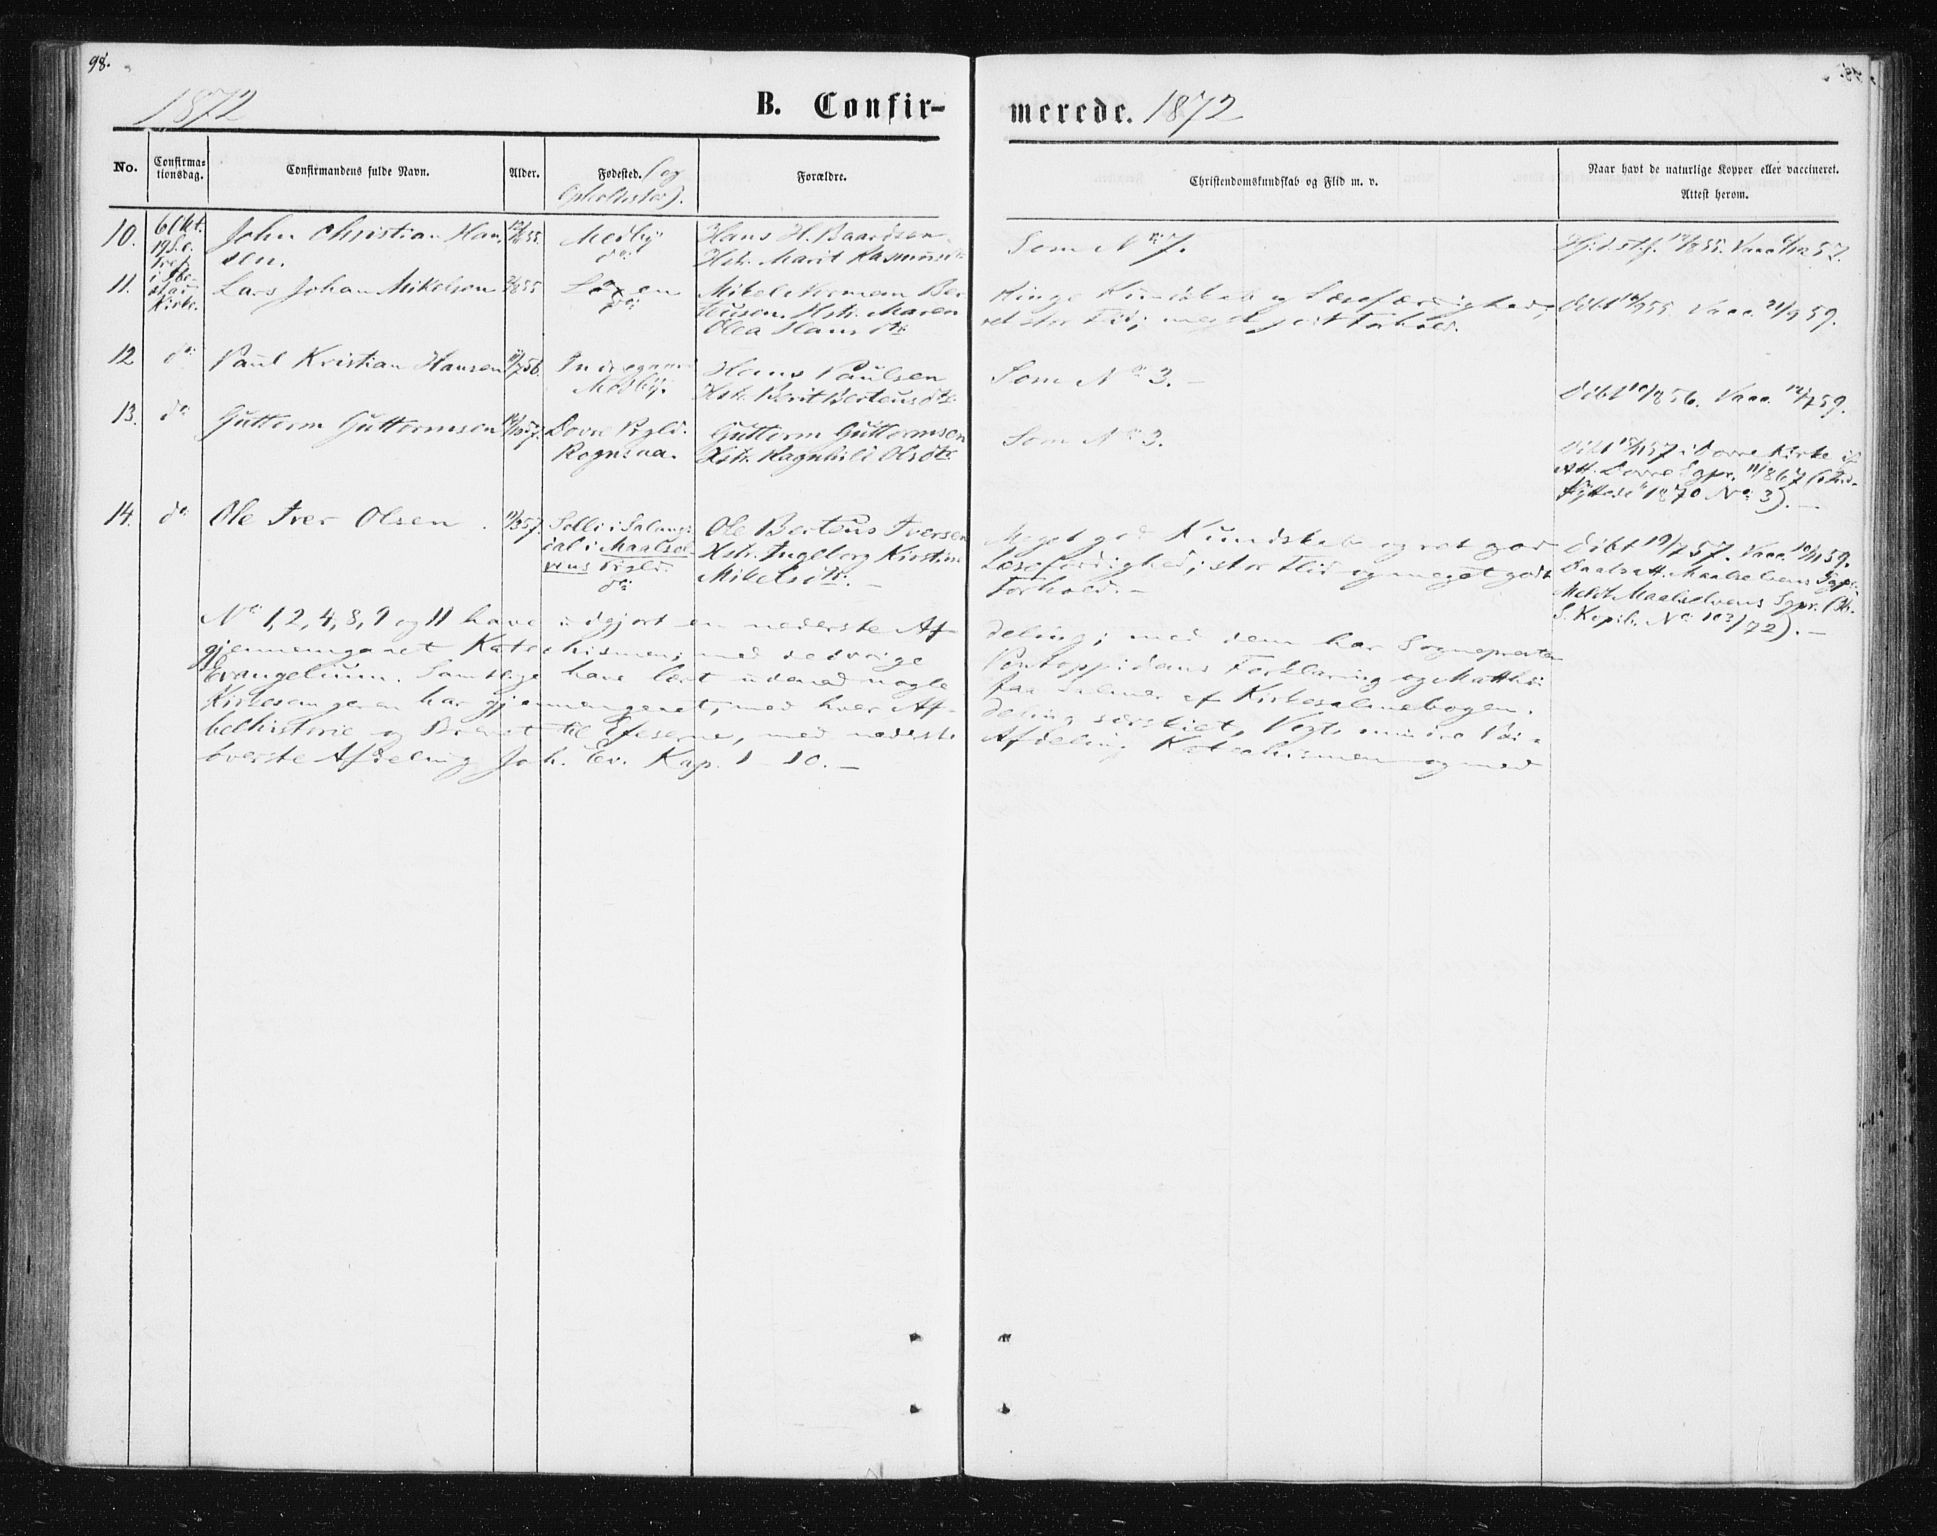 98.
1872
B. Confir-
merede. 1872
No.
Confirma-
tionsdag.
Confirmandens fulde Navn.
Alder.
Fødested. (og
Opholdssted).
Forældre.
Christendomskundskab og Flid m. v.
Naar havt de naturlige Kopper eller vaccineret.
Attest herom.
10.
6 Okt.
19 S. e.
Tref.
i Ibe-
stad
Kirke.
John Christian Han-
sen.
Medby
do
Hans H. Baardsen
Hstr. Marit Rasmusdtr.
Som No 7.
11.
Lars Johan Mikelsen
do
Mikel Norman Ber-
teusen. Hstr. Maren
Olea Hansdtr.
Ringe Kundskab og Læsefærdighed,
ret stor Flid; meget godt Forhold.
Vacc. 21/9 59.
12
do
Paul Kristian Hansen
Indregaard
Medby.
Hans Paulsen
Hstr. Berit Berteusdtr.
Som No 3. -
Døbt 10/8 56. Vacc. 12/7 59.
13.
do
Guttorm Guttormsen
Dovre Prgld.
Rognsaa.
Guttorm Guttormsen
Hstr. Ragnhild Olsdtr.
Som No 3.
i Dovre Kirke if.
Att. Dovre Sgpr. 11/8 67 (Ind-
flyttede 1870 No 3). -
14.
do
Ole Iver Olsen
Solli i Salangs-
dal i Maalsel-
vens Prgld.
do
Ole Berteus Iversen
Hstr. Ingeborg Kirstine
Mikelsdtr. -
Meget god Kundskab og ret god
Læsefærdighed; stor Flid og meget godt
Forhold. -
Døbt 19/7 57. Vacc.
Daabsatt. Maalselvens Sgpr.
Meldt Maalselvens Sgpr. (Br.
S. Kopib. No 103/72). -
No 1, 2, 4, 8, 9 og 11 have udgjort en nederste Af-
deling; med dem har Sognepræsten
gjennemgaaet Katechismen; med de øvrige
Pontoppidans Forklaring og Matthæi
Evangelium. Samtlige have lært udenad nogle
faa Salmer af Kirkesalmebogen.
Kirkesangeren har gjennemgaaet, med hver Af-
deling særskilt, Vogts mindre Bi-
belhistorie og Brevet til Efeserne, med nederste
Afdeling Katechismen og med
øverste Afdeling Joh. Ev. Kap. 1-10. -